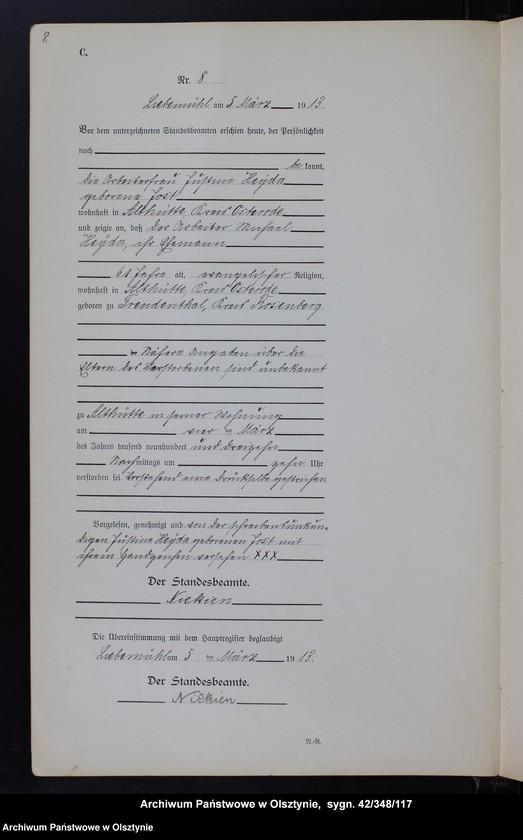 8
C.
Nr. 8
Liebemühl am 5. März 1913.
Vor dem unterzeichneten Standesbeamten erschien heute, der Persönlichkeit
nach
be kannt,
die Arbeiterfrau Justine Heyda
geborene Jost
wohnhaft in Althütte, Kreis Osterode
und zeigte an, daß der Arbeiter Michael
Heyda, ihr Ehemann
61 Jahre alt, evangelischer Religion,
wohnhaft in Althütte, Kreis Osterode
geboren zu Freudenthal, Kreis Rosenberg
Nähere Angaben über die
Eltern des Verstorbenen sind unbekannt
zu Althütte in seiner Wohnung
am vier ten März
des Jahres tausend neunhundert und dreizehn
Nachmittags um zehn Uhr
verstorben sei. Vorstehend eine Drucksilbe gestrichen
Vorgelesen, genehmigt und von der schreibensunkun-
digen Justine Heyda geborenen Jost mit
ihrem Handzeichen versehen XXX
Der Standesbeamte.
Die Übereinstimmung mit dem Hauptregister beglaubigt
Liebemühl am 5 ten März 1913.
Der Standesbeamte.
N.-R.
Archiwum Państwowe w Olsztynie, sygn. 42/348/117
Archiwum Państwowe w Olsztynie